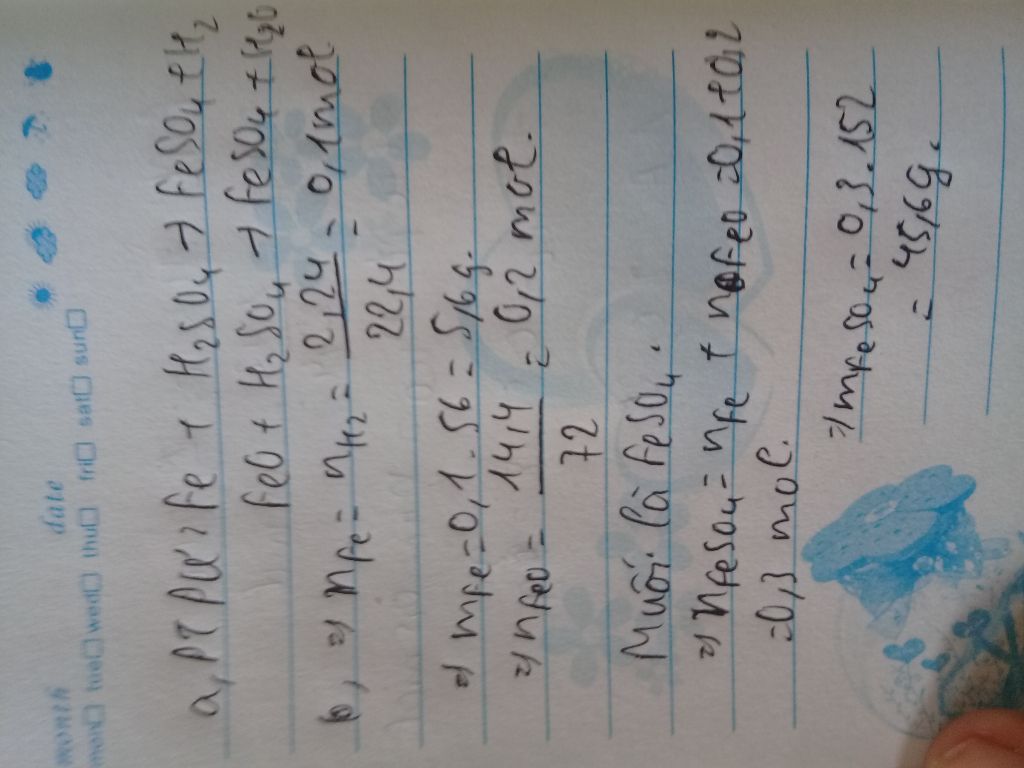 month
date
mon□ tue□ wed□ thu□ fri□ sat□ sun□
a, PT PƯ: Fe + H₂SO₄ → FeSO₄ + H₂
FeO + H₂SO₄ → FeSO₄ + H₂O
b, ⇒ nFe = nH₂ = 2,24 / 22,4 = 0,1mol
⇒ mFe = 0,1 . 56 = 5,6g.
⇒ nFeO = 14,4 / 72 = 0,2 mol.
Muối là FeSO₄.
⇒ nFeSO₄ = nFe + nFeO = 0,1+0,2
= 0,3 mol.
⇒ mFeSO₄ = 0,3.152
= 45,6g.